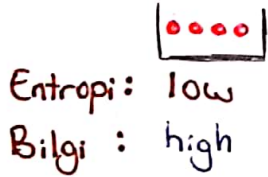 Entropi: low
Bilgi : high